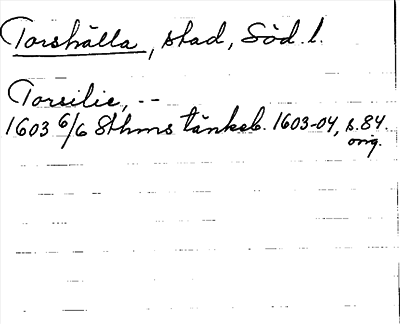 Torshälla, stad, Söd. l.
Torsilie, --
1603 6/6 Sthms tänkeb. 1603-04, s. 84.
orig.